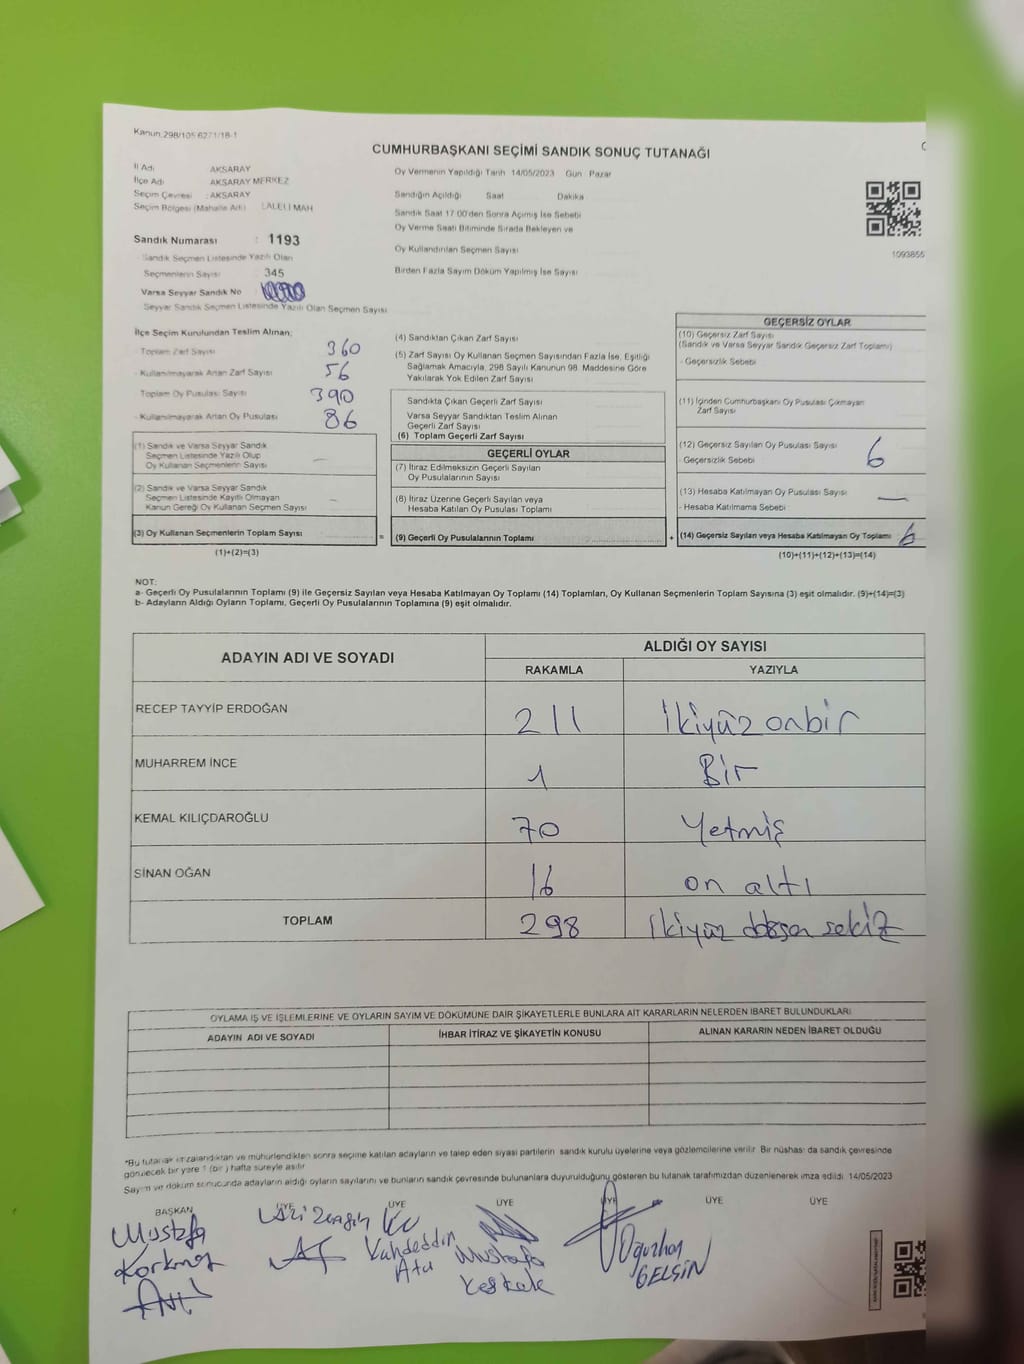 Kanun:298/105 6271/18-1
CUMHURBAŞKANI SEÇİMİ SANDIK SONUÇ TUTANAĞI
İl Adı AKSARAY
İlçe Adı AKSARAY MERKEZ
Seçim Çevresi : AKSARAY
Seçim Bölgesi (Mahalle Adı) LALELİ MAH
Oy Vermenin Yapıldığı Tarih 14/05/2023 Gün Pazar
Sandığın Açıldığı Saat Dakika
Sandık Saat 17:00'den Sonra Açılmış İse Sebebi
Oy Verme Saati Bitiminde Sırada Bekleyen ve
Oy Kullandırılan Seçmen Sayısı
Birden Fazla Sayım Döküm Yapılmış İse Sayısı
1093855
Sandık Numarası : 1193
Sandık Seçmen Listesinde Yazılı Olan
Seçmenlerin Sayısı 345
Varsa Seyyar Sandık No
Seyyar Sandık Seçmen Listesinde Yazılı Olan Seçmen Sayısı
İlçe Seçim Kurulundan Teslim Alınan;
Toplam Zarf Sayısı 360
- Kullanılmayarak Artan Zarf Sayısı 56
Toplam Oy Pusulası Sayısı 390
- Kullanılmayarak Artan Oy Pusulası 86
(1) Sandık ve Varsa Seyyar Sandık
Seçmen Listesinde Yazılı Olup
Oy Kullanan Seçmenlerin Sayısı —
(2) Sandık ve Varsa Seyyar Sandık
Seçmen Listesinde Kayıtlı Olmayan
Kanun Gereği Oy Kullanan Seçmen Sayısı —
(3) Oy Kullanan Seçmenlerin Toplam Sayısı =
(1)+(2)=(3)
(4) Sandıktan Çıkan Zarf Sayısı
(5) Zarf Sayısı Oy Kullanan Seçmen Sayısından Fazla İse, Eşitliği
Sağlamak Amacıyla, 298 Sayılı Kanunun 98. Maddesine Göre
Yakılarak Yok Edilen Zarf Sayısı
Sandıkta Çıkan Geçerli Zarf Sayısı
Varsa Seyyar Sandıktan Teslim Alınan
Geçerli Zarf Sayısı
(6) Toplam Geçerli Zarf Sayısı
GEÇERLİ OYLAR
(7) İtiraz Edilmeksizin Geçerli Sayılan
Oy Pusulalarının Sayısı
(8) İtiraz Üzerine Geçerli Sayılan veya
Hesaba Katılan Oy Pusulası Toplamı
(9) Geçerli Oy Pusulalarının Toplamı +
GEÇERSİZ OYLAR
(10) Geçersiz Zarf Sayısı
(Sandık ve Varsa Seyyar Sandık Geçersiz Zarf Toplamı)
- Geçersizlik Sebebi
(11) İçinden Cumhurbaşkanı Oy Pusulası Çıkmayan
Zarf Sayısı
(12) Geçersiz Sayılan Oy Pusulası Sayısı 6
- Geçersizlik Sebebi
(13) Hesaba Katılmayan Oy Pusulası Sayısı —
- Hesaba Katılmama Sebebi
(14) Geçersiz Sayılan veya Hesaba Katılmayan Oy Toplamı 6
(10)+(11)+(12)+(13)=(14)
NOT:
a- Geçerli Oy Pusulalarının Toplamı (9) ile Geçersiz Sayılan veya Hesaba Katılmayan Oy Toplamı (14) Toplamları, Oy Kullanan Seçmenlerin Toplam Sayısına (3) eşit olmalıdır. (9)+(14)=(3)
b- Adayların Aldığı Oyların Toplamı, Geçerli Oy Pusulalarının Toplamına (9) eşit olmalıdır.
ADAYIN ADI VE SOYADI
ALDIĞI OY SAYISI
RAKAMLA YAZIYLA
RECEP TAYYİP ERDOĞAN 211 İkiyüz onbir
MUHARREM İNCE 1 Bir
KEMAL KILIÇDAROĞLU 70 Yetmiş
SİNAN OĞAN 16 on altı
TOPLAM 298 ikiyüz doksan sekiz
OYLAMA İŞ VE İŞLEMLERİNE VE OYLARIN SAYIM VE DÖKÜMÜNE DAİR ŞİKAYETLERLE BUNLARA AİT KARARLARIN NELERDEN İBARET BULUNDUKLARI
ADAYIN ADI VE SOYADI İHBAR İTİRAZ VE ŞİKAYETİN KONUSU ALINAN KARARIN NEDEN İBARET OLDUĞU
*Bu tutanak imzalandıktan ve mühürlendikten sonra seçime katılan adayların ve talep eden siyasi partilerin sandık kurulu üyelerine veya gözlemcilerine verilir. Bir nüshası da sandık çevresinde
görülecek bir yere 1 (bir) hafta süreyle asılır.
Sayım ve döküm sonucunda adayların aldığı oyların sayılarını ve bunların sandık çevresinde bulunanlara duyurulduğunu gösteren bu tutanak tarafımızdan düzenlenerek imza edildi. 14/05/2023
BAŞKAN ÜYE ÜYE ÜYE ÜYE ÜYE ÜYE
Mustafa
Korkmaz
Vahdeddin
Ata
Mustafa
Keskek
Oğuzhan
GELSİN